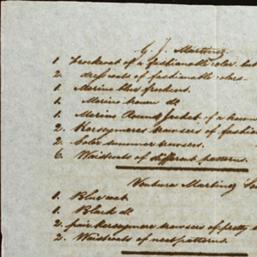 G. J. Martinez
1. Frockcoat of a fashionable color. but
2. dress coats of fashionable colors.
1. Merino blue frockcoat.
1. Merino brown do.
1. Merino Round Jacket of a brown
2. Kerseymere trowsers of fashion
2. Color summer trowsers.
6. Waistcoats of different patterns.
Ventura Martinez
1. Blue coat
1. Black do
2. pair Kerseymere trowsers of pretty
2. Waistcoats of neat patterns.